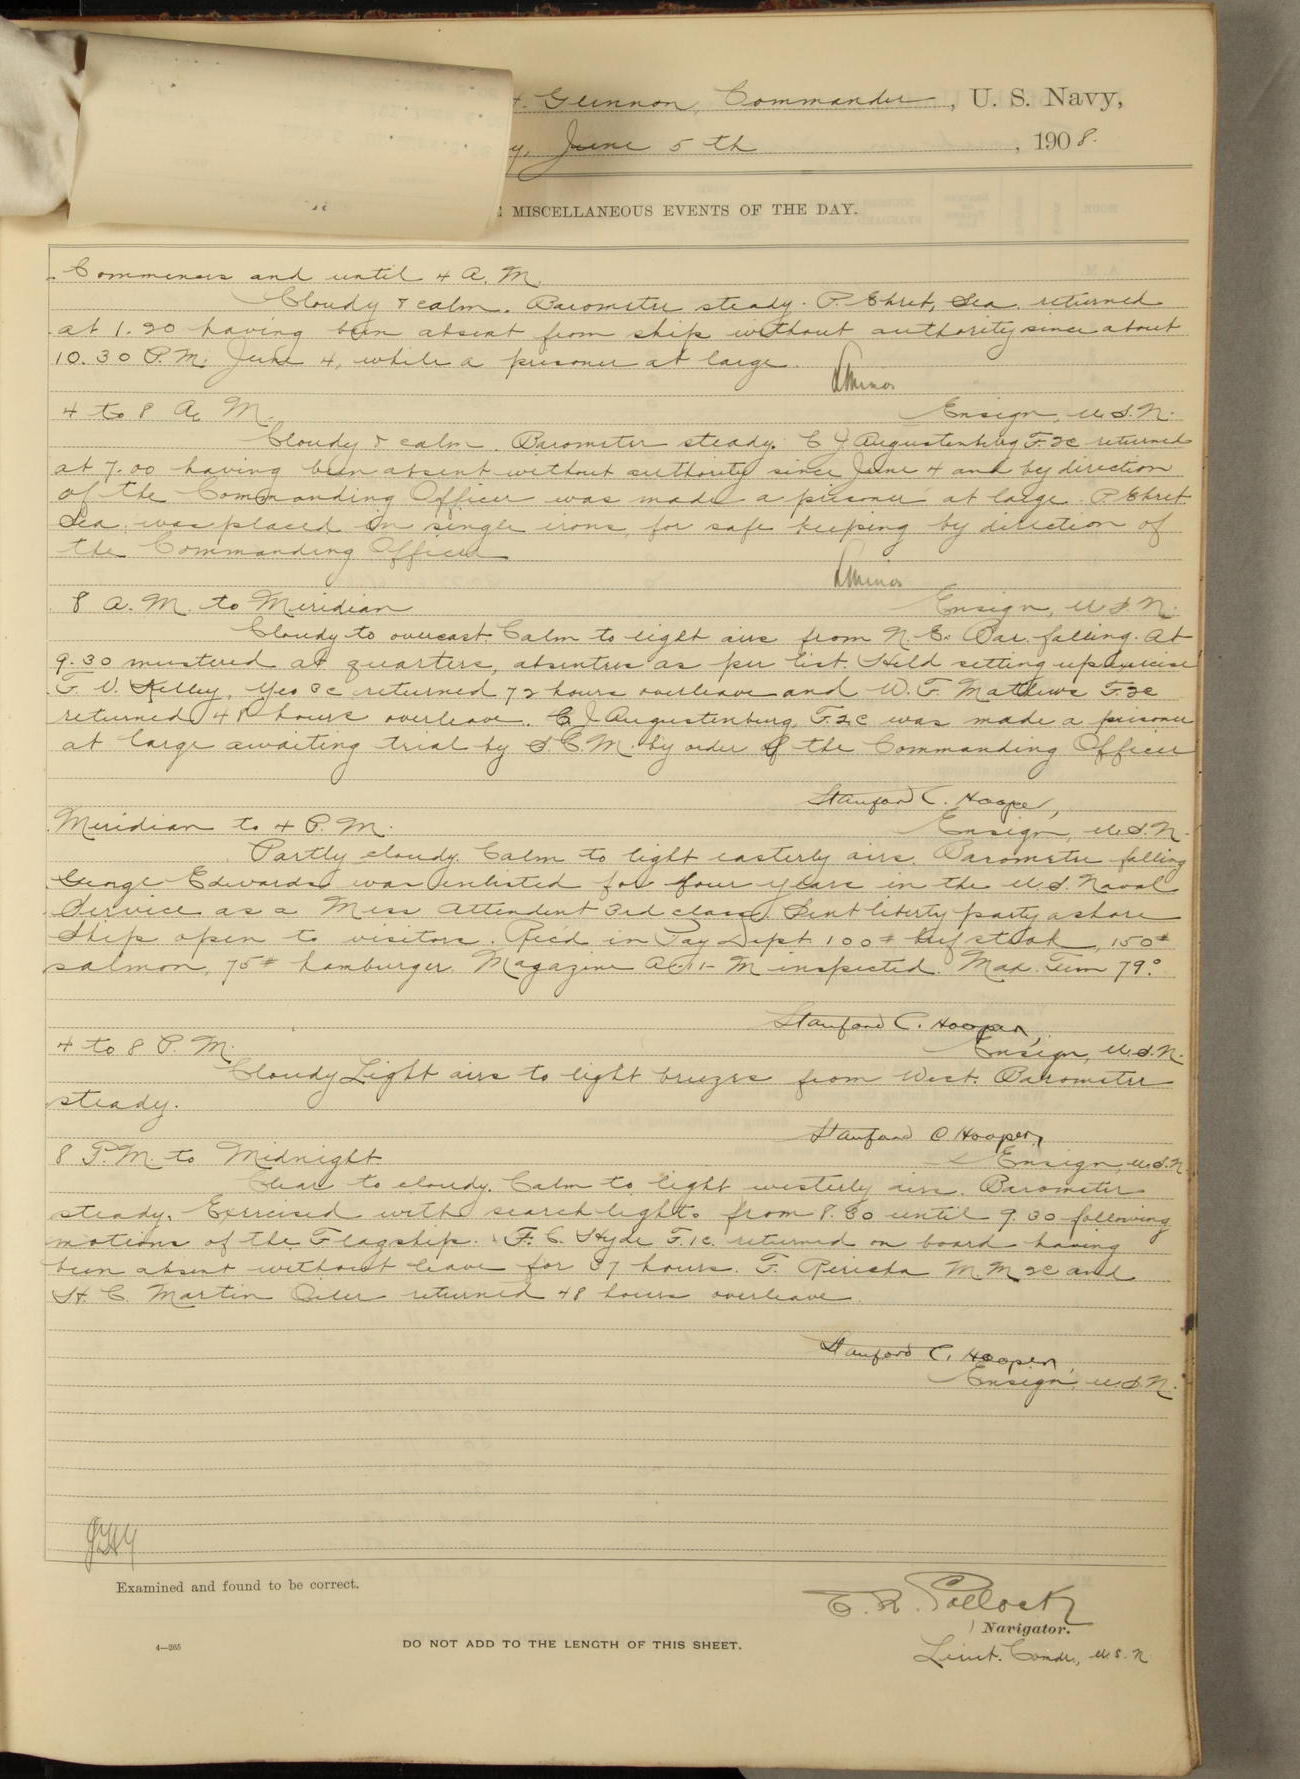 H. Glennon, Commander, U. S. Navy,
y, June 5th, 1908.
MISCELLANEOUS EVENTS OF THE DAY.
Commences and until 4 A. M.
Cloudy & calm. Barometer steady. P. Ehret, Sea. returned
at 1.20 having been absent from ship without authority since about
10.30 P.M. June 4, while a prisoner at large.
L Minor
4 to 8 A. M.
Ensign, U.S.N.
Cloudy & calm. Barometer steady. C J Augustenburg F.2c returned
at 7.00 having been absent without authority since June 4 and by direction
of the Commanding Officer was made a prisoner at large. P. Ehret
Sea. was placed in single irons, for safe keeping by direction of
the Commanding Officer
L Minor
8 A. M. to Meridian
Ensign, U.S.N.
Cloudy to overcast. Calm to light airs from N.E. Bar. falling. At
9.30 mustered at quarters, absentees as per list. Held setting up exercise
F. V. Kelley, Yeo 3c returned 72 hours overleave and W. F. Mathews F.2c
returned 48 hours overleave. C J Augustenburg, F.2c was made a prisoner
at large awaiting trial by S.C.M. by order of the Commanding Officer
Stanford C. Hooper,
Meridian to 4 P. M.
Ensign, U.S.N.
Partly cloudy. Calm to light easterly airs. Barometer falling
George Edwards was enlisted for four years in the U.S. Naval
Service as a Mess Attendent 3rd class. Sent liberty party ashore
Ship open to visitors. Rec'd in Pay Dept. 100# beef steak, 150#
salmon, 75# hamburger. Magazine A-11-M inspected. Max. Tem 79°
Stanford C. Hooper,
4 to 8 P. M.
Ensign, U.S.N.
Cloudy Light airs to light breezes from West. Barometer
steady.
Stanford C Hooper,
8 P.M. to Midnight
Ensign, U.S.N.
Clear to cloudy. Calm to light westerly airs. Barometer
steady. Exercised with searchlights from 8.30 until 9.30 following
motions of the Flagship. F. C. Hyde F.1c. returned on board having
been absent without leave for 37 hours. F. Pericha M.M.2c and
H. C. Martin Oiler returned 48 hours overleave.
Stanford C. Hooper,
Ensign, U.S.N.
Examined and found to be correct.
E. R. Pollock
Navigator.
4—265
DO NOT ADD TO THE LENGTH OF THIS SHEET.
Lieut. Comdr., U.S.N.